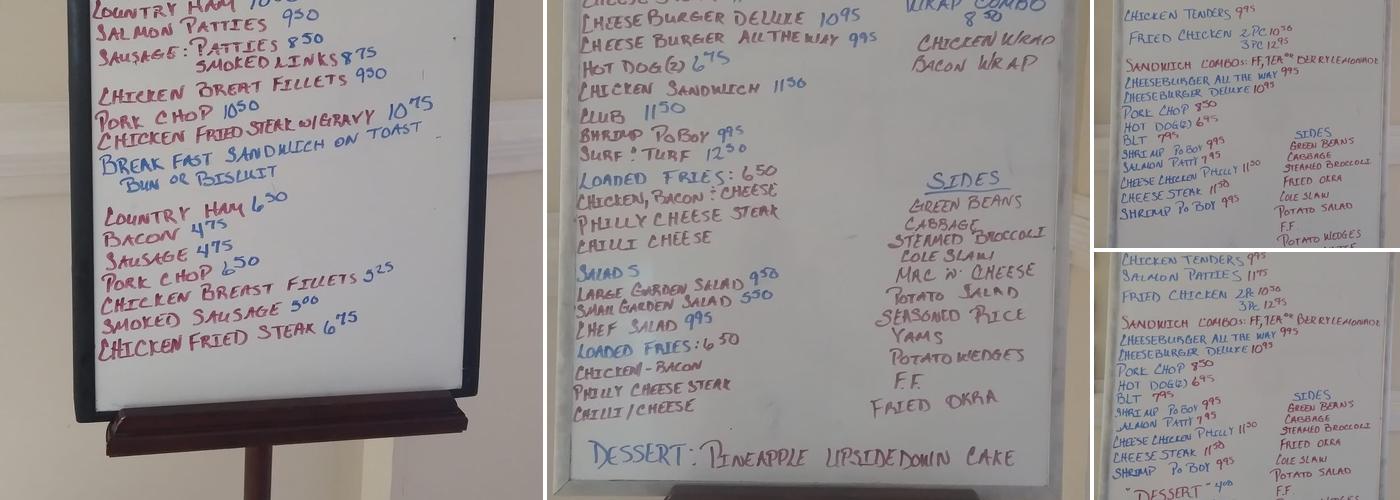 COUNTRY HAM
SALMON PATTIES 950
SAUSAGE: PATTIES 850
SMOKED LINKS 875
CHICKEN BREAT FILLETS 950
PORK CHOP 1050
CHICKEN FRIED STEAK W/GRAVY 1075
BREAK FAST SANDWICH ON TOAST
BUN OR BISCUIT
COUNTRY HAM 650
BACON 475
SAUSAGE 475
PORK CHOP 650
CHICKEN BREAST FILLETS 525
SMOKED SAUSAGE 500
CHICKEN FRIED STEAK 675
CHEESE BURGER DELUXE 1095
CHEESE BURGER ALL THE WAY 995
HOT DOG(2) 675
CHICKEN SANDWICH 1150
CLUB 1150
SHRIMP PO BOY 995
SURF : TURF 1250
LOADED FRIES: 650
CHICKEN, BACON : CHEESE
PHILLY CHEESE STEAK
CHILLI CHEESE
SALADS
LARGE GARDEN SALAD 950
SMALL GARDEN SALAD 550
CHEF SALAD 995
LOADED FRIES: 650
CHICKEN - BACON
PHILLY CHEESE STEAK
CHILLI/CHEESE
WRAP COMBO
850
CHICKEN WRAP
BACON WRAP
SIDES
GREEN BEANS
CABBAGE
STEAMED BROCCOLI
COLE SLAW
MAC N' CHEESE
POTATO SALAD
SEASONED RICE
YAMS
POTATO WEDGES
F.F.
FRIED OKRA
DESSERT: PINEAPPLE UPSIDEDOWN CAKE
CHICKEN TENDERS 995
FRIED CHICKEN 2PC 1050
3PC 1295
SANDWICH COMBOS: FF, TEA OR BERRY LEMONADE
CHEESEBURGER ALL THE WAY 995
CHEESEBURGER DELUXE 1095
PORK CHOP 850
HOT DOG(2) 695
BLT 795
SHRIMP PO BOY 995
SALMON PATTY 795
CHEESE CHICKEN PHILLY 1150
CHEESE STEAK 1150
SHRIMP PO BOY 995
SIDES
GREEN BEANS
CABBAGE
STEAMED BROCCOLI
FRIED OKRA
COLE SLAW
POTATO SALAD
F.F
POTATO WEDGES
CHICKEN TENDERS 995
SALMON PATTIES 1195
FRIED CHICKEN 2PC 1050
3PC 1295
SANDWICH COMBOS: FF, TEA OR BERRY LEMONADE
CHEESEBURGER ALL THE WAY 995
CHEESEBURGER DELUXE 1095
PORK CHOP 850
HOT DOG(2) 695
BLT 795
SHRIMP PO BOY 995
SALMON PATTY 795
CHEESE CHICKEN PHILLY 1150
CHEESE STEAK 1150
SHRIMP PO BOY 995
"DESSERT" 400
SIDES
GREEN BEANS
CABBAGE
STEAMED BROCCOLI
FRIED OKRA
COLE SLAW
POTATO SALAD
F.F